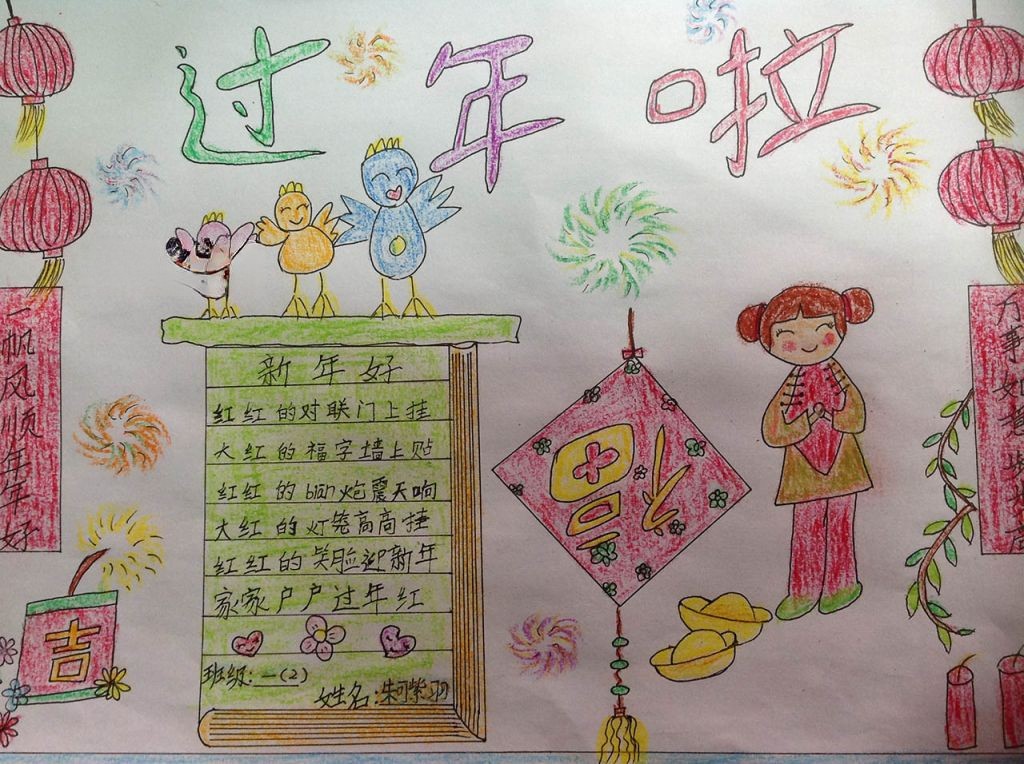 过年啦
一帆风顺年年好
万事如意步步高
新年好
红红的对联门上挂
大红的福字墙上贴
红红的bian炮震天响
大红的灯笼高高挂
红红的笑脸迎新年
家家户户过年红
班级:一(2)
姓名:
福
吉